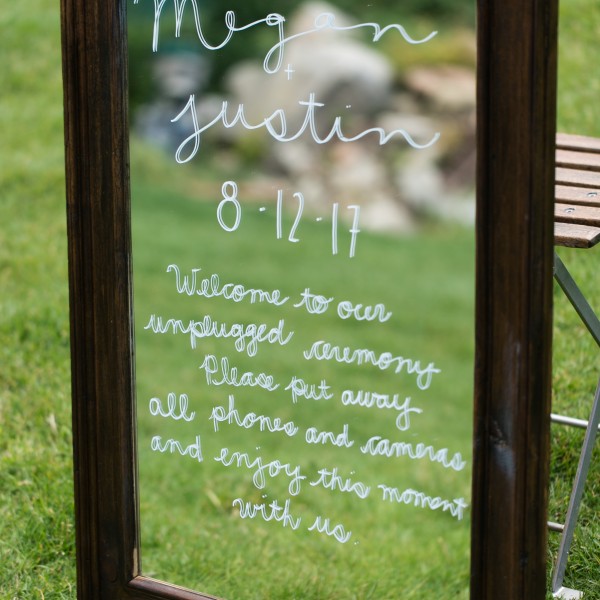 Megan
+
justin
8 - 12 - 17
Welcome to our
unplugged ceremony
Please put away
all phones and cameras
and enjoy this moment
with us.